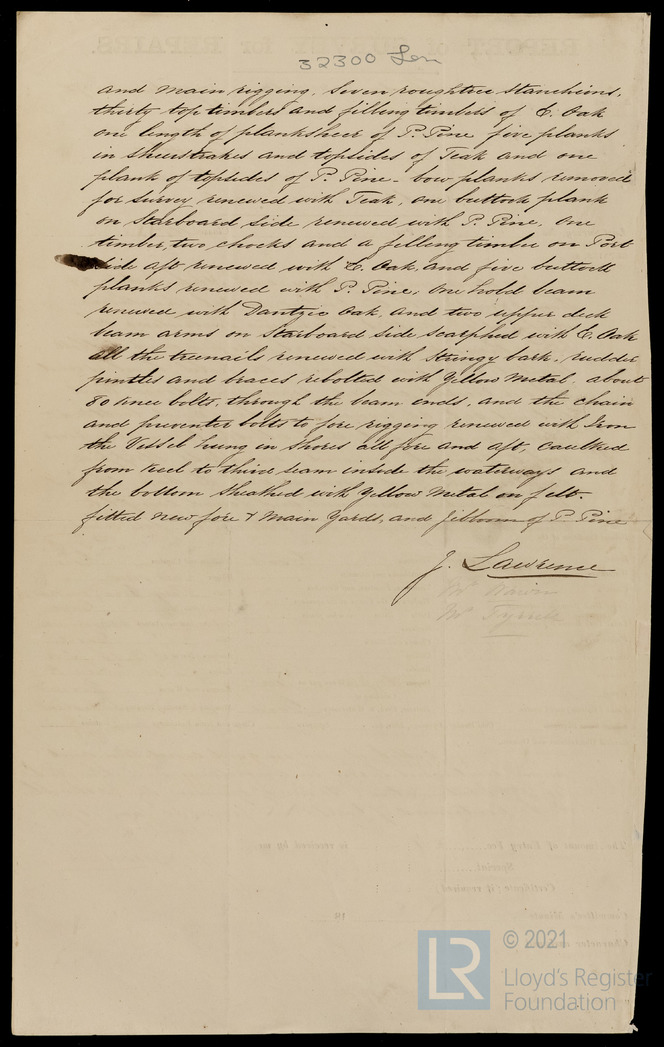 32300 Lon
and Main rigging, Seven roughtree stanchions,
thirty top timbers and filling timbers of E. Oak
one length of planksheer of P. Pine five planks
in sheerstrakes and topsides of Teak and one
plank of topsides of P. Pine - bow planks removed
for survey renewed with Teak, one buttock plank
on Starboard side renewed with P. Pine, One
timber, two chocks and a filling timber on Port
side aft renewed with E. Oak, and five buttock
planks renewed with P. Pine; one hold beam
renewed with Dantzic Oak, and two upper deck
beam arms on Starboard side scarphed with E Oak
all the treenails renewed with stringy bark. rudder
pintles and braces rebolted with Yellow Metal. about
80 knee bolts, through the beam ends, and the chain
and preventer bolts to fore rigging renewed with Iron
the Vessel hung in shores all fore and aft, caulked
from keel to third seam inside the waterways and
the bottom sheathed with Yellow Metal on felt.
fitted new fore & Main Yards, and Jibboom of P. Pine
J. Lawrence
© 2021
LR
Lloyd's Register
Foundation